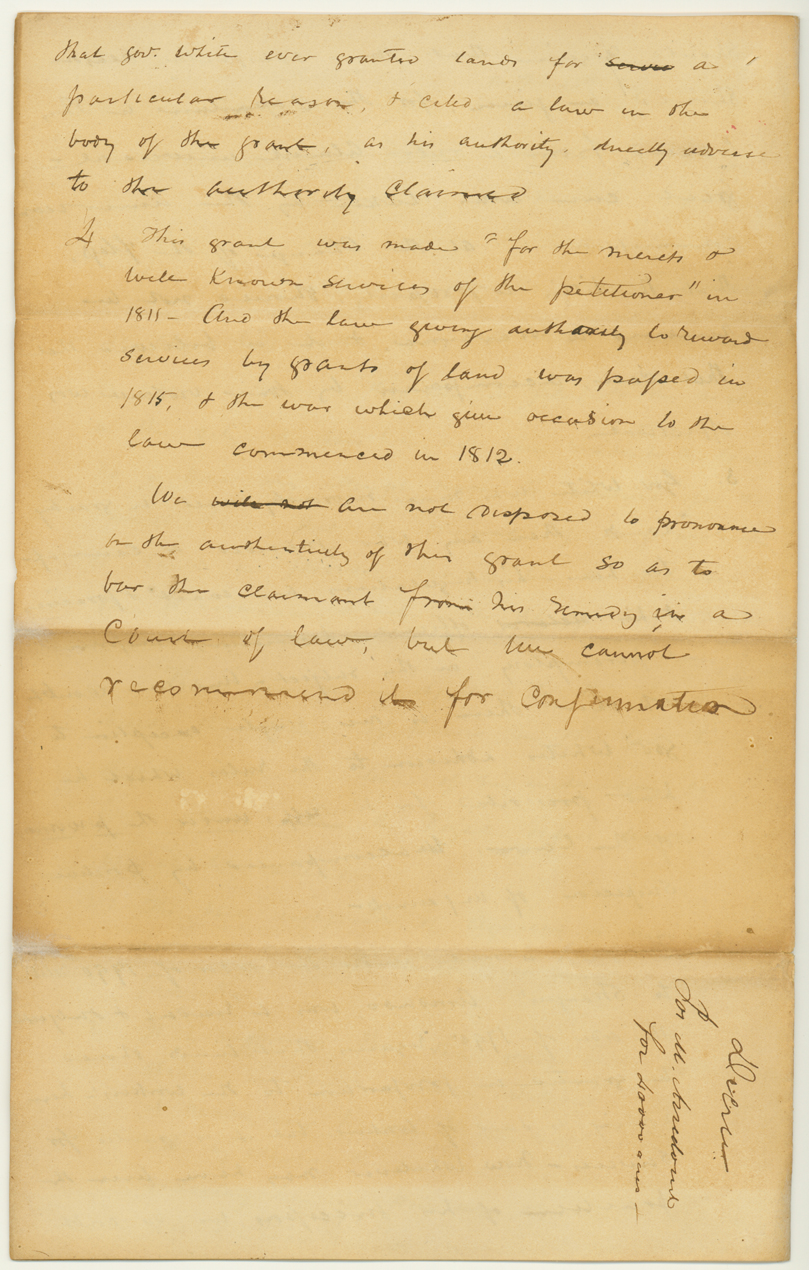 that gov. White ever granted lands for serves a
particular reason, & cited a law in the
body of the grant, as his authority, directly adverse
to the authority claimed
4 This grant was made "for the merits &
well known services of the petitioner" in
1811 - And the law giving authority to reward
services by grants of land was passed in
1815, & the war which give occasion to the
law commenced in 1812.
We will not are not disposed to pronounce
on the authenticity of this grant so as to
bar the claimant from his remedy in a
Court of law, but we cannot
recommend it for confirmation
Decree
Jos M. Arredondo
for 20000 acres -